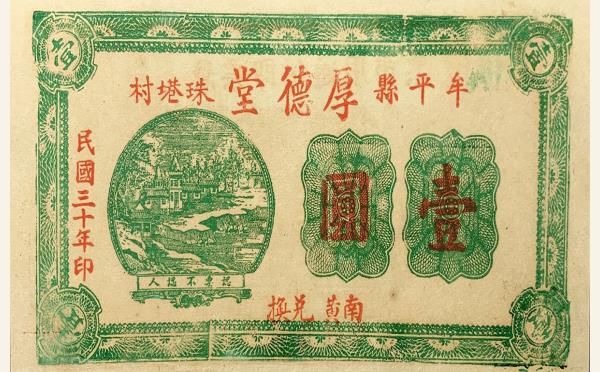 牟平縣 厚德堂 珠塔村
壹圓
民國三十年印
認票不認人
南黄兌換